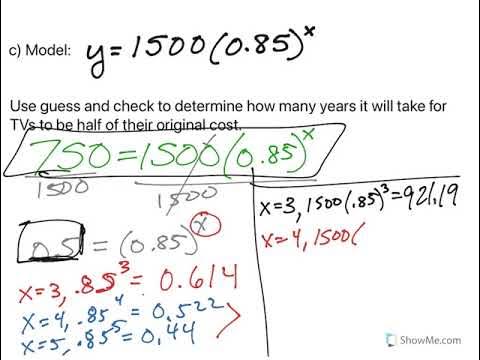 c) Model: y = 1500(0.85)^x
Use guess and check to determine how many years it will take for
TVs to be half of their original cost.
750 = 1500(0.85)^x
1500 1500
0.5 = (0.85)^x
x=3, .85^3 = 0.614
x=4, .85^4 = 0.522
x=5, .85^5 = 0.44 >
x=3, 1500(.85)^3 = 921.19
x=4, 1500(
ShowMe.com